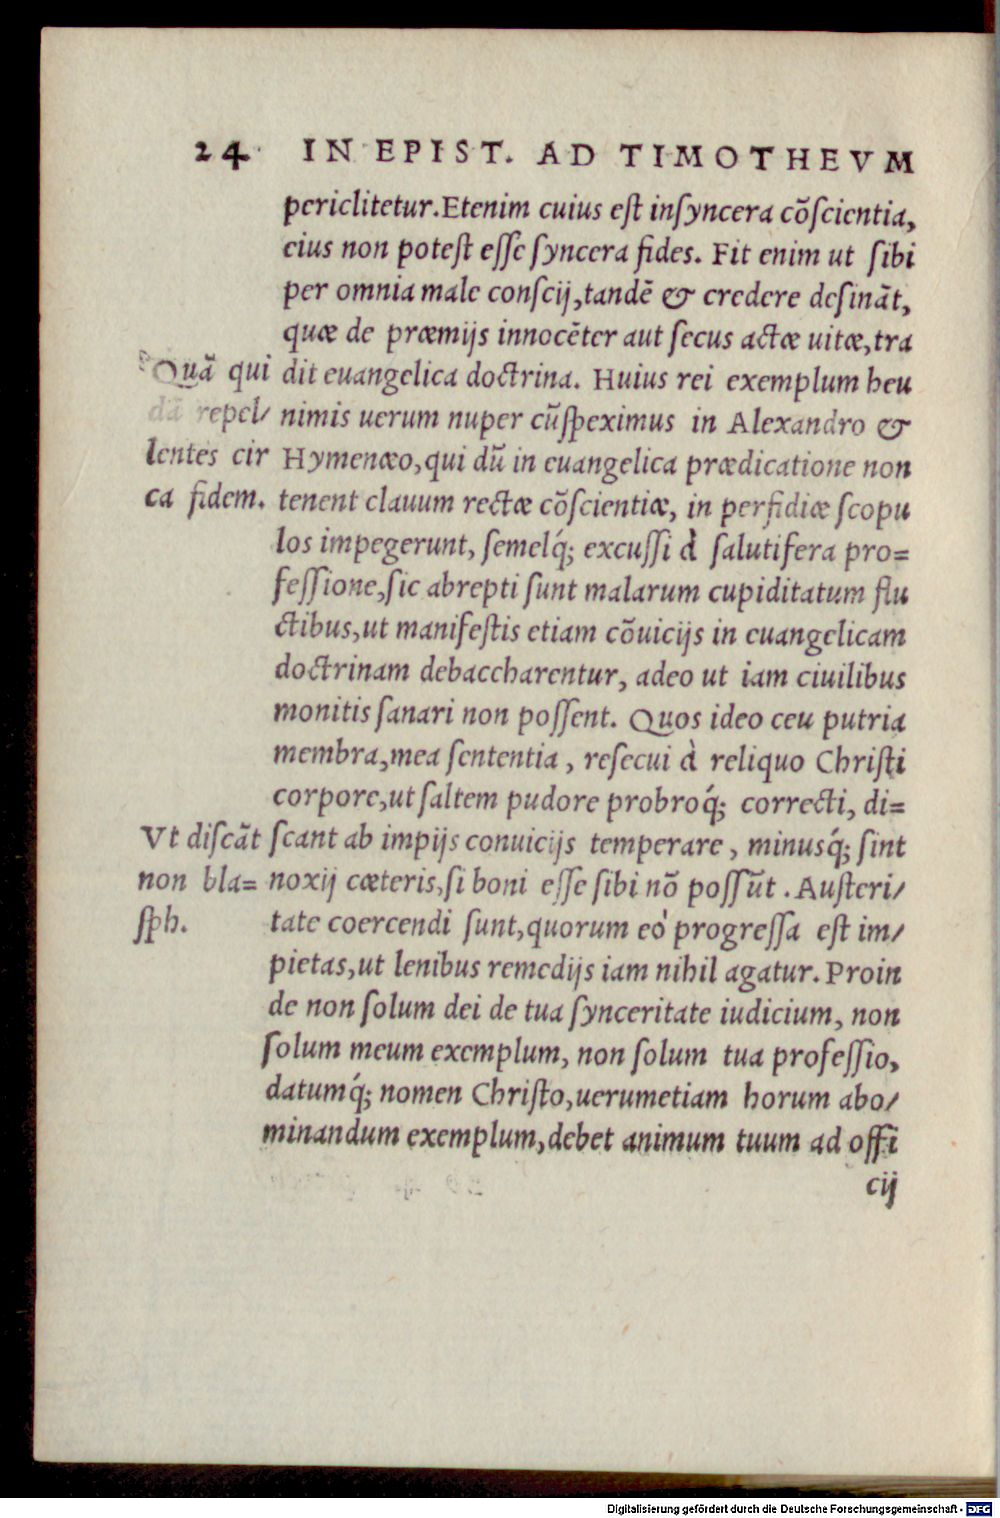 24 IN EPIST. AD TIMOTHEVM
periclitetur. Etenim cuius eſt inſyncera cõſcientia,
eius non poteſt eſſe ſyncera fides. Fit enim ut ſibi
per omnia male conſcij, tandẽ & credere deſinãt,
quæ de præmijs innocẽter aut ſecus actæ uitæ, tra
dit euangelica doctrina. Huius rei exemplum heu
nimis uerum nuper cũſpeximus in Alexandro &
Hymenæo, qui dũ in euangelica prædicatione non
tenent clauum rectæ cõſcientiæ, in perfidiæ ſcopu
los impegerunt, ſemelq́; excuſſi à ſalutifera pro=
feſſione, ſic abrepti ſunt malarum cupiditatum flu
ctibus, ut manifeſtis etiam cõuicijs in euangelicam
doctrinam debaccharentur, adeo ut iam ciuilibus
monitis ſanari non poſſent. Quos ideo ceu putria
membra, mea ſententia, reſecui à reliquo Chriſti
corpore, ut ſaltem pudore probroq́; correcti, di=
ſcant ab impijs conuicijs temperare, minusq́; ſint
noxij cæteris, ſi boni eſſe ſibi nõ poſſũt. Auſteri/
tate coercendi ſunt, quorum eò progreſſa eſt im/
pietas, ut lenibus remedijs iam nihil agatur. Proin
de non ſolum dei de tua ſynceritate iudicium, non
ſolum meum exemplum, non ſolum tua profeſſio,
datumq́; nomen Chriſto, uerumetiam horum abo/
minandum exemplum, debet animum tuum ad offi
cij
Quã qui
dã repel/
lentes cir
ca fidem.
Vt diſcãt
non bla=
ſph.
Digitalisierung gefördert durch die Deutsche Forschungsgemeinschaft - DFG